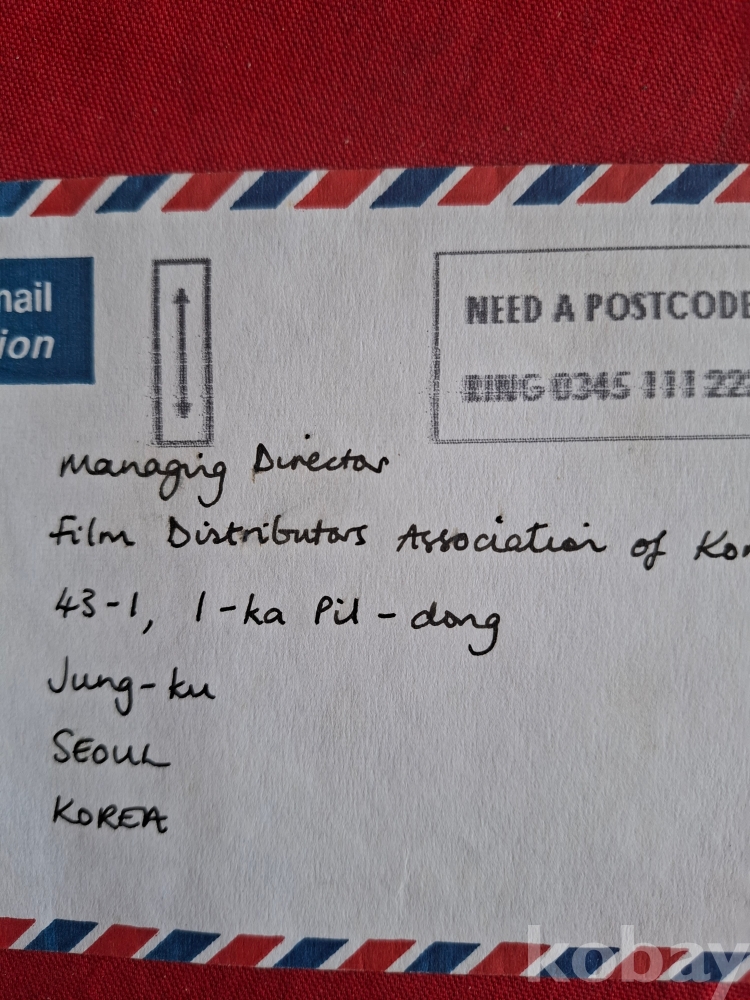 mail
ion
NEED A POSTCODE
RING 0345 111 222
Managing Director
Film Distributors Association of Kor
43-1, 1-ka Pil-dong
Jung-ku
SEOUL
KOREA
kobay